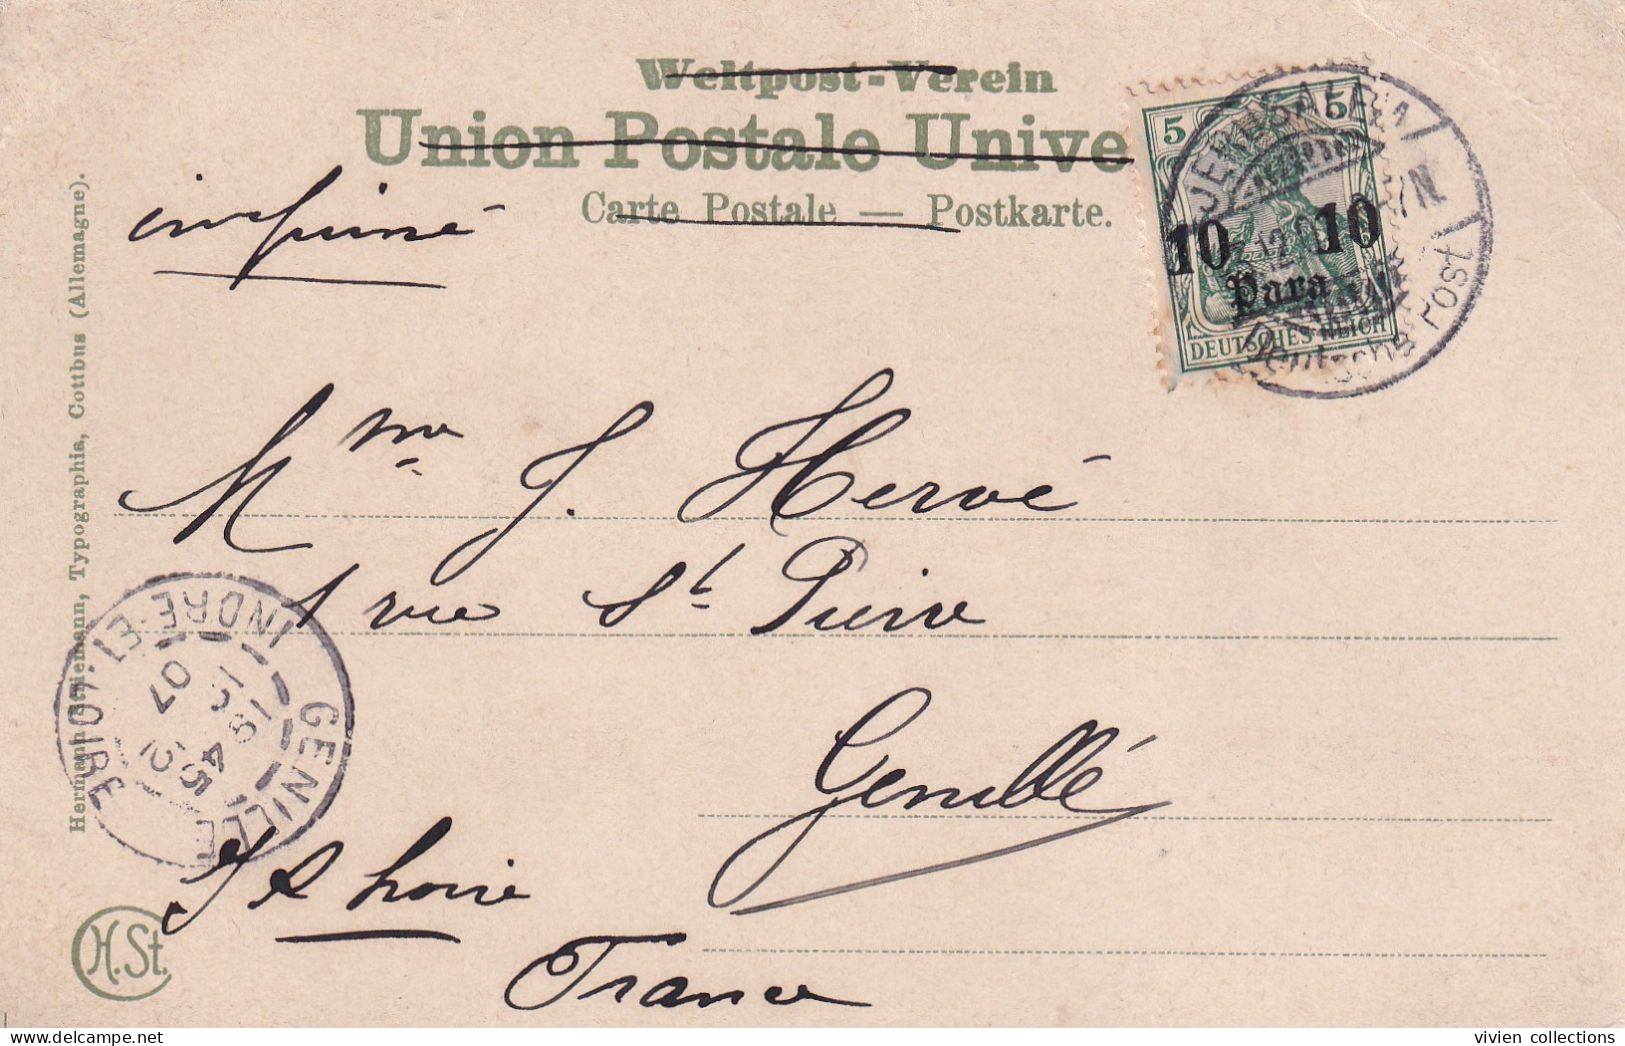 Weltpost-Verein
Union Postale Unive
Carte Postale — Postkarte.
imprimé
5 5
10 10
Para
DEUTSCHES REICH
JERUSALEM
Deutsche Post
Mme J. Hervé
1 rue St Pierre
Genillé
I & Loire
France
GENILLÉ
INDRE-ET-LOIRE
19 45
07
Hermann Striemann, Typographia, Cottbus (Allemagne).
H.St.
vivien collections